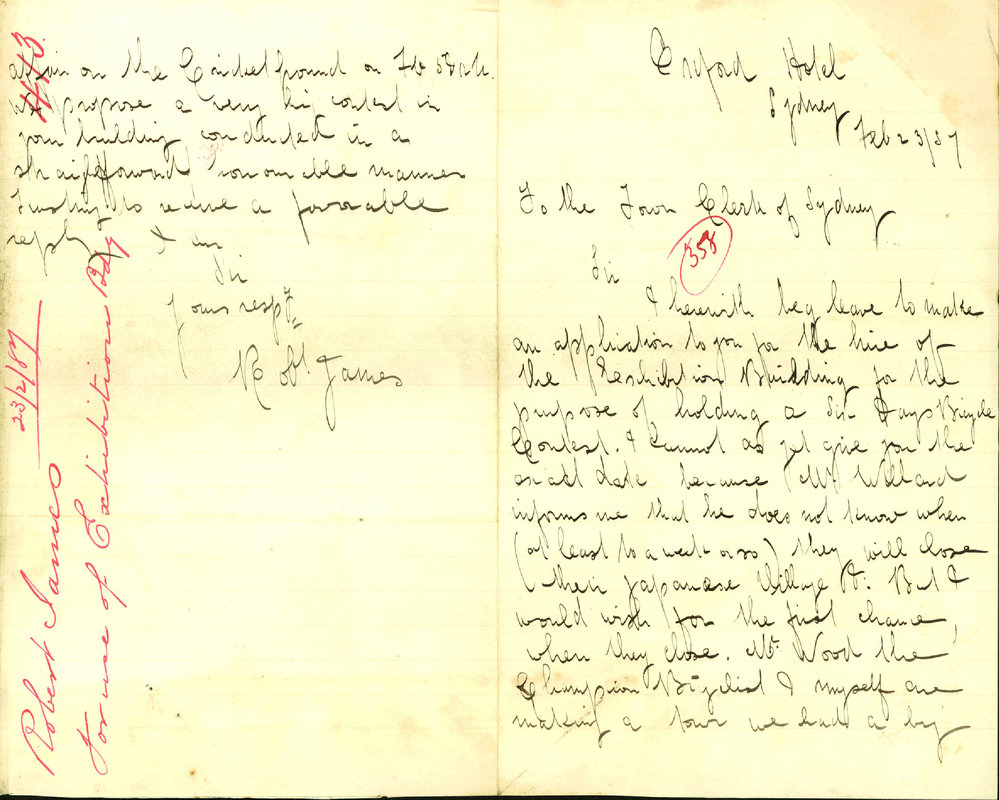 Oxford Hotel
Sydney
Feb 23/87
To the Town Clerk of Sydney
358
Sir
I herewith beg leave to make
an application to you for the hire of
the Exhibition Building for the
purpose of holding a Six Days Bicycle
Contest. I cannot as yet give you the
exact date because Mr Willard
informs me that he does not know when
(at least to a week or so) they will close
their Japanese Village &c. But I
would wish for the first chance,
when they close. Mr. Wood the
Champion Bicyclist & myself are
making a tour we had a big
affair on the Cricket Ground on Feb
We propose a very big contest in
your building conducted in a
straightforward honourable manner
Trusting to receive a favorable
reply I am
Sir
yours respy
Robt James
443
Robert James 23/2/87
for use of Exhibition Bdg